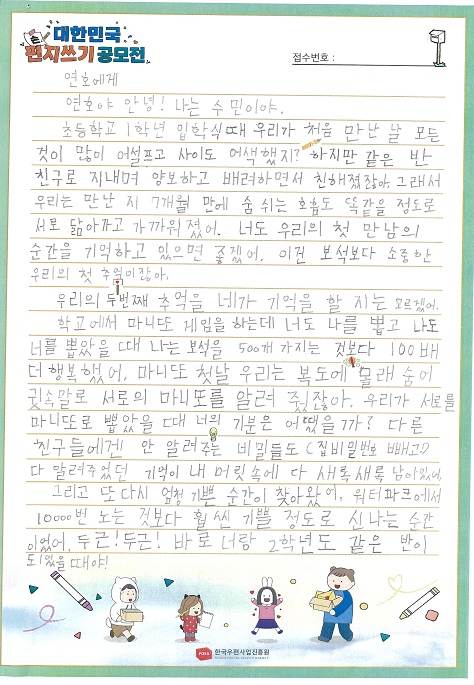 대한민국
편지쓰기 공모전
접수번호 :
연호에게
연호야 안녕! 나는 수민이야.
초등학교 1학년 입학식때 우리가 처음 만난 날 모든
것이 많이 어설프고 사이도 어색했지? 하지만 같은 반
친구로 지내며 양보하고 배려하면서 친해졌잖아. 그래서
우리는 만난 지 7개월 만에 숨 쉬는 호흡도 똑같을 정도로
서로 닮아가고 가까워졌어. 너도 우리의 첫 만남의
순간을 기억하고 있으면 좋겠어. 이건 보석보다 소중한
우리의 첫 추억이잖아.
우리의 두번째 추억을 네가 기억을 할 지는 모르겠어.
학교에서 마니또 게임을 하는데 너도 나를 뽑고 나도
너를 뽑았을 때 나는 보석을 500개 가지는 것보다 100배
더 행복했어, 마니또 첫날 우리는 복도에 몰래 숨어
귓속말로 서로의 마니또를 알려 줬잖아. 우리가 서로를
마니또로 뽑았을 때 너의 기분은 어땠을까? 다른
친구들에게 안 알려주는 비밀들도 (집비밀번호 빼고♡)
다 알려주었던 기억이 내 머릿속에 다 새록새록 담아있어.
그리고 또다시 엄청 기쁜 순간이 찾아왔어, 워터파크에서
10000번 노는 것보다 훨씬 기쁠 정도로 신나는 순간
이었어. 두근!두근! 바로 너랑 2학년도 같은 반이
되었을 때야!
POSA 한국우편사업진흥원